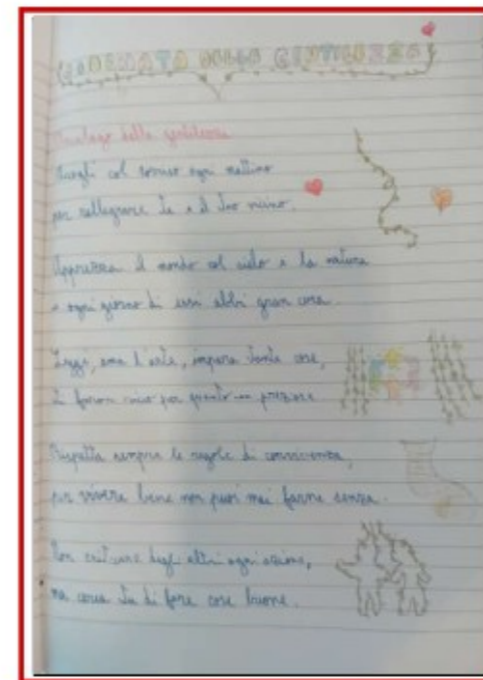 GIORNATA DELLA GENTILEZZA
Decalogo della gentilezza
Svegli col sorriso ogni mattino
per rallegrare te e il tuo vicino.
Apprezza il mondo col cielo e la natura
e ogni giorno di essi abbi gran cura.
Leggi, ama l'arte, impara tante cose,
ti faron
Rispetta sempre le regole di convivenza,
per vivere bene non puoi mai farne senza.
Non criticare degli altri ogni azione,
ma cerca tu di fare cose buone.